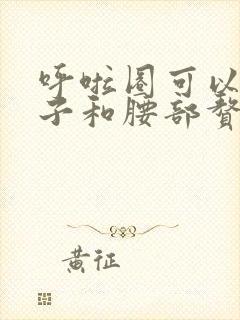 呼啦圈可以
子和腰部赘
黄征